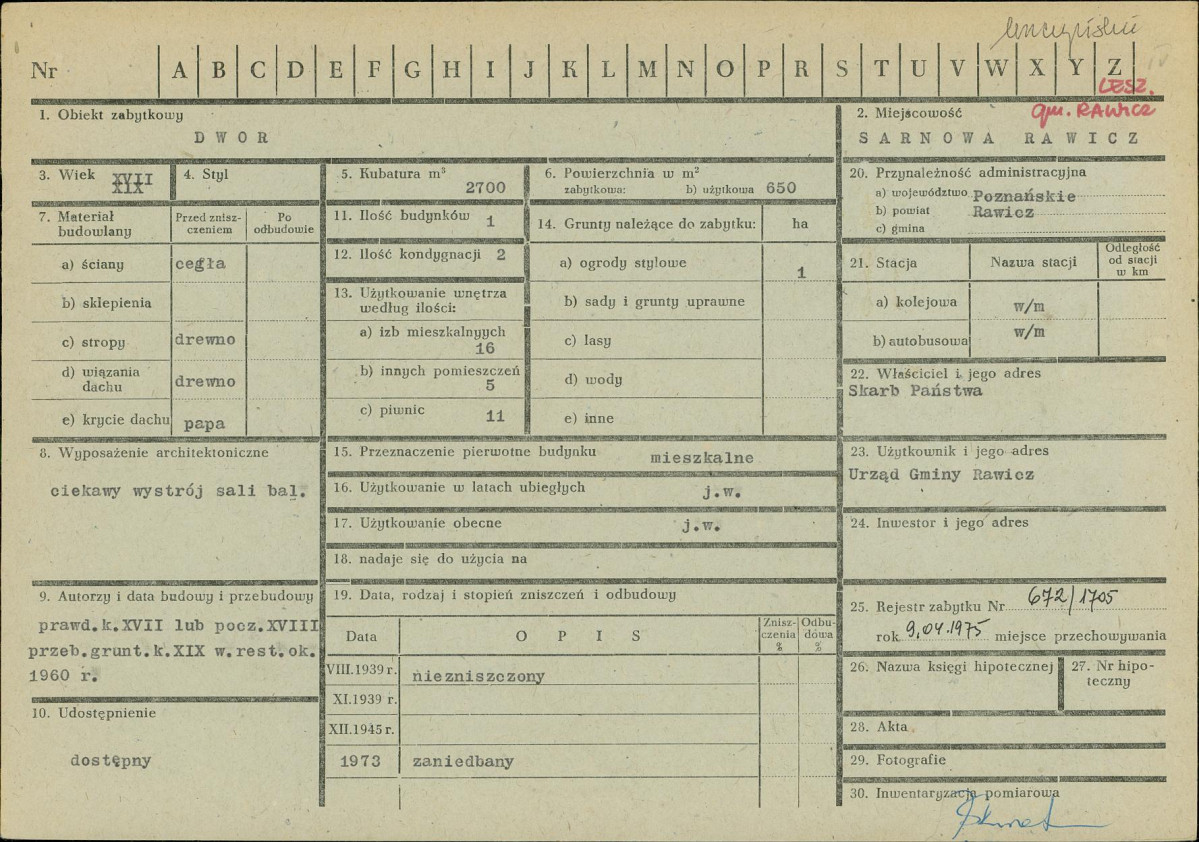 leszczyńskie
Nr A B C D E F G H I J K L M N O P R S T U V W X Y Z
LESZ.
gm. RAWICZ
1. Obiekt zabytkowy
DWOR
2. Miejscowość
SARNOWA RAWICZ
3. Wiek XVII
XIX
4. Styl
5. Kubatura m³ 2700
6. Powierzchnia w m²
zabytkowa: b) użytkowa 650
7. Materiał budowlany
Przed zniszczeniem
Po odbudowie
a) ściany cegła
b) sklepienia
c) stropy drewno
d) wiązania dachu drewno
e) krycie dachu papa
8. Wyposażenie architektoniczne
ciekawy wystrój sali bal.
9. Autorzy i data budowy i przebudowy
prawd.k.XVII lub pocz.XVIII
przeb.grunt.k.XIX w.rest.ok.
1960 r.
10. Udostępnienie
dostępny
11. Ilość budynków 1
12. Ilość kondygnacji 2
13. Użytkowanie wnętrza
według ilości:
a) izb mieszkalnyych
16
b) innych pomieszczeń
5
c) piwnic 11
14. Grunty należące do zabytku: ha
a) ogrody stylowe 1
b) sady i grunty uprawne
c) lasy
d) wody
e) inne
15. Przeznaczenie pierwotne budynku mieszkalne
16. Użytkowanie w latach ubiegłych j.w.
17. Użytkowanie obecne j.w.
18. nadaje się do użycia na
19. Data, rodzaj i stopień zniszczeń i odbudowy
Data OPIS Zniszczenia % Odbudowa %
VIII.1939 r. niezniszczony
XI.1939 r.
XII.1945 r.
1973 zaniedbany
20. Przynależność administracyjna
a) województwo Poznańskie
b) powiat Rawicz
c) gmina
21. Stacja Nazwa stacji Odległość od stacji w km
a) kolejowa w/m
b) autobusowa w/m
22. Właściciel i jego adres
Skarb Państwa
23. Użytkownik i jego adres
Urząd Gminy Rawicz
24. Inwestor i jego adres
25. Rejestr zabytku Nr 672/1705
rok 9.04.1975 miejsce przechowywania
26. Nazwa księgi hipotecznej
27. Nr hipoteczny
28. Akta
29. Fotografie
30. Inwentaryzacja pomiarowa